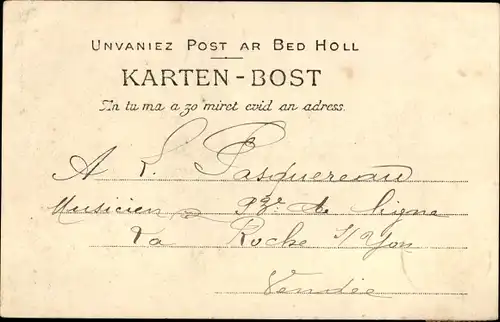 UNVANIEZ POST AR BED HOLL
KARTEN-BOST
An tu ma a zo miret evid an adress.
A L. Pasquereau
Musicien 93e de ligne
La Roche s/Yon
Vendée